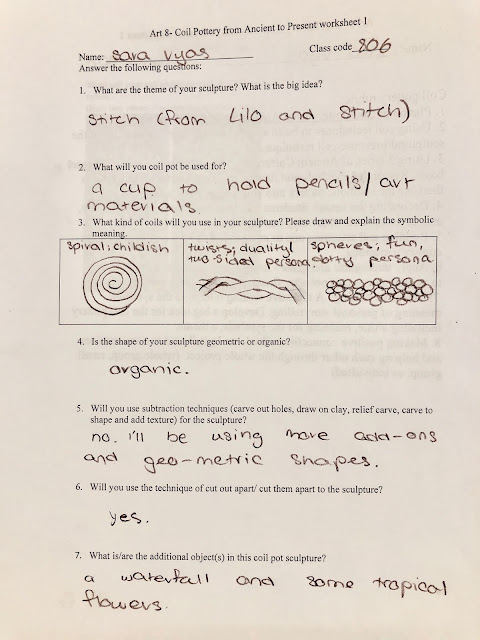 Art 8- Coil Pottery from Ancient to Present worksheet 1
Name: Sara Vyas Class code 806
Answer the following questions:
1. What are the theme of your sculpture? What is the big idea?
Stitch (from Lilo and Stitch)
2. What will you coil pot be used for?
a cup to hold pencils/art
materials.
3. What kind of coils will you use in your sculpture? Please draw and explain the symbolic
meaning.
spiral; childish
twists; duality/
two-sided persona
spheres; fun,
dotty persona
4. Is the shape of your sculpture geometric or organic?
organic.
5. Will you use subtraction techniques (carve out holes, draw on clay, relief carve, carve to
shape and add texture) for the sculpture?
no. i'll be using more add-ons
and geo-metric shapes.
6. Will you use the technique of cut out apart/ cut them apart to the sculpture?
yes.
7. What is/are the additional object(s) in this coil pot sculpture?
a waterfall and some tropical
flowers.